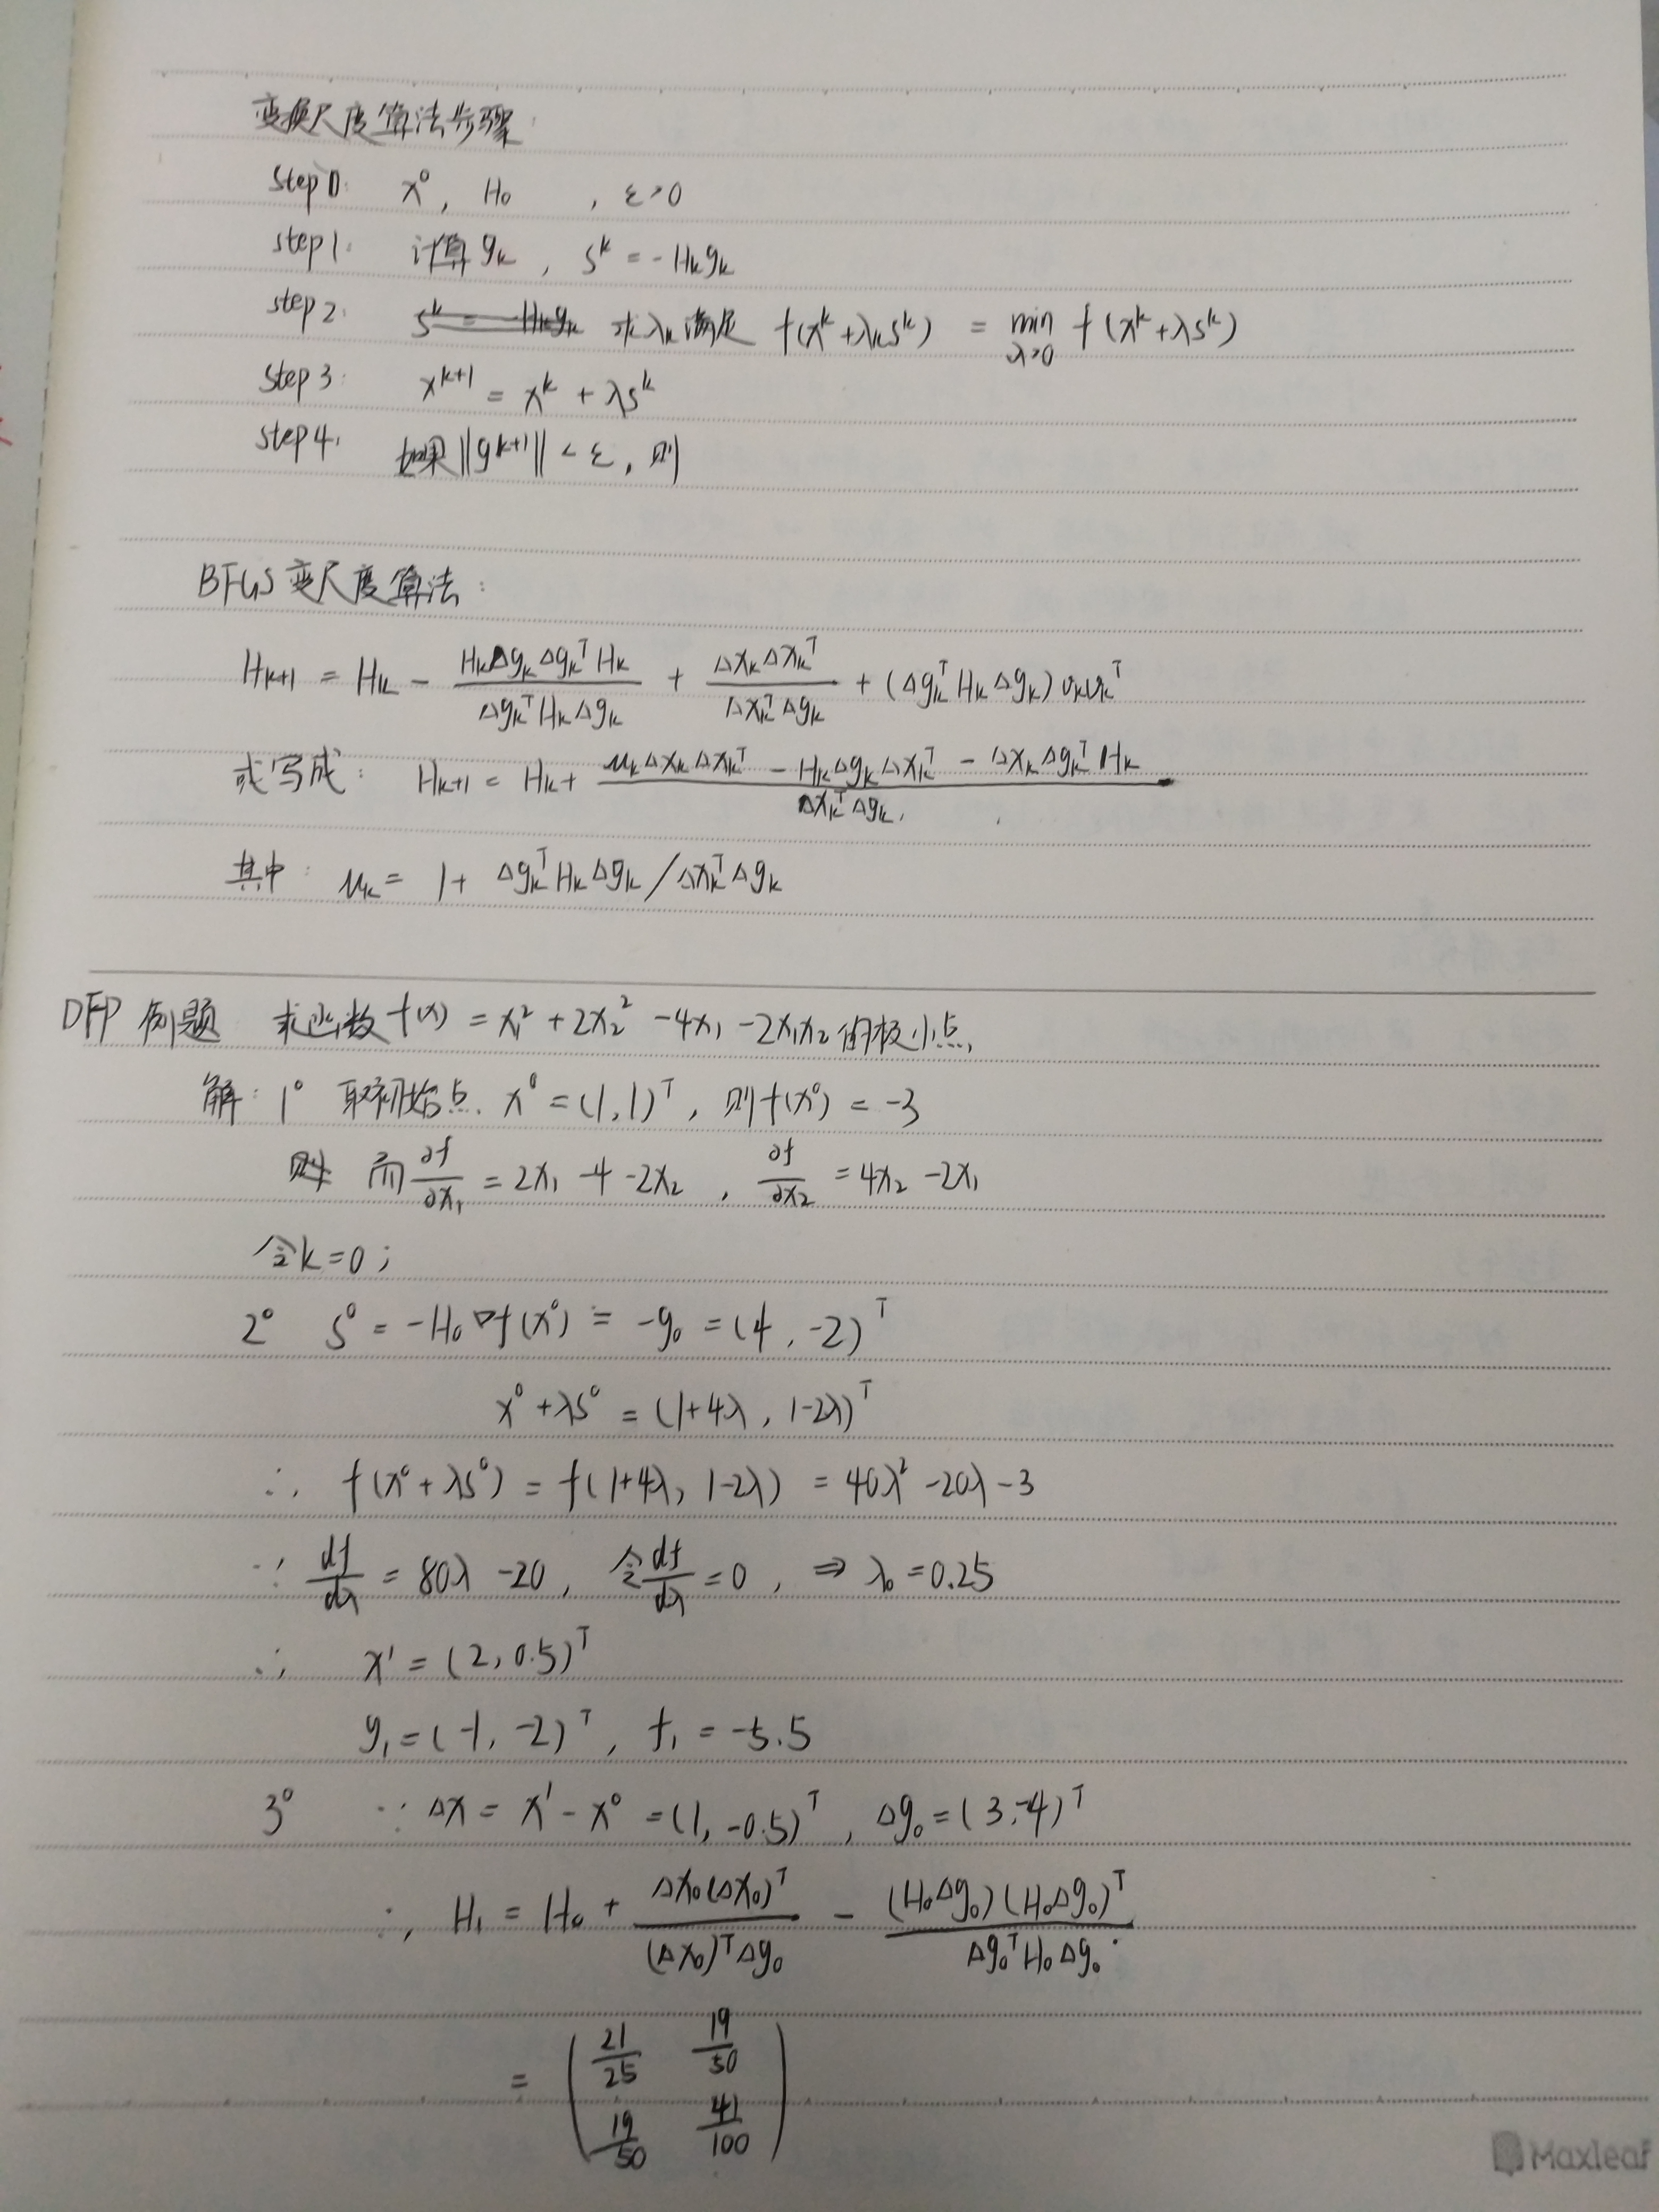 变换尺度算法步骤:
Step 0: x⁰, H₀ , ε>0
step 1: 计算 gₖ , Sᵏ = -Hₖgₖ
step 2: 求λₖ满足 f(xᵏ+λₖSᵏ) = min_{λ>0} f(xᵏ+λSᵏ)
step 3: xᵏ⁺¹ = xᵏ + λSᵏ
step 4: 如果 ||gᵏ⁺¹|| < ε, 则
BFGS 变尺度算法:
Hₖ₊₁ = Hₖ - (HₖΔgₖΔgₖᵀHₖ)/(ΔgₖᵀHₖΔgₖ) + (ΔxₖΔxₖᵀ)/(ΔxₖᵀΔgₖ) + (ΔgₖᵀHₖΔgₖ)vₖvₖᵀ
或写成: Hₖ₊₁ = Hₖ + (μₖΔxₖΔxₖᵀ - HₖΔgₖΔxₖᵀ - ΔxₖΔgₖᵀHₖ)/(ΔxₖᵀΔgₖ)
其中: μₖ = 1 + ΔgₖᵀHₖΔgₖ/ΔxₖᵀΔgₖ
DFP 例题 求函数 f(x) = x₁² + 2x₂² - 4x₁ - 2x₁x₂ 的极小点.
解: 1° 取初始点. x⁰ = (1,1)ᵀ, 则 f(x⁰) = -3
而 ∂f/∂x₁ = 2x₁ - 4 - 2x₂ , ∂f/∂x₂ = 4x₂ - 2x₁
令 k = 0;
2° S⁰ = -H₀∇f(x⁰) = -g₀ = (4, -2)ᵀ
x⁰ + λS⁰ = (1+4λ, 1-2λ)ᵀ
∴ f(x⁰ + λS⁰) = f(1+4λ, 1-2λ) = 40λ² - 20λ - 3
∵ df/dλ = 80λ - 20, 令 df/dλ = 0, ⇒ λ₀ = 0.25
∴ x¹ = (2, 0.5)ᵀ
g₁ = (-1, -2)ᵀ, f₁ = -5.5
3° ∵ Δx = x¹ - x⁰ = (1, -0.5)ᵀ, Δg₀ = (3,-4)ᵀ
∴ H₁ = H₀ + (Δx₀(Δx₀)ᵀ)/((Δx₀)ᵀΔg₀) - ((H₀Δg₀)(H₀Δg₀)ᵀ)/(Δg₀ᵀH₀Δg₀)
= ( 21/25 19/50
19/50 41/100 )
Maxleaf